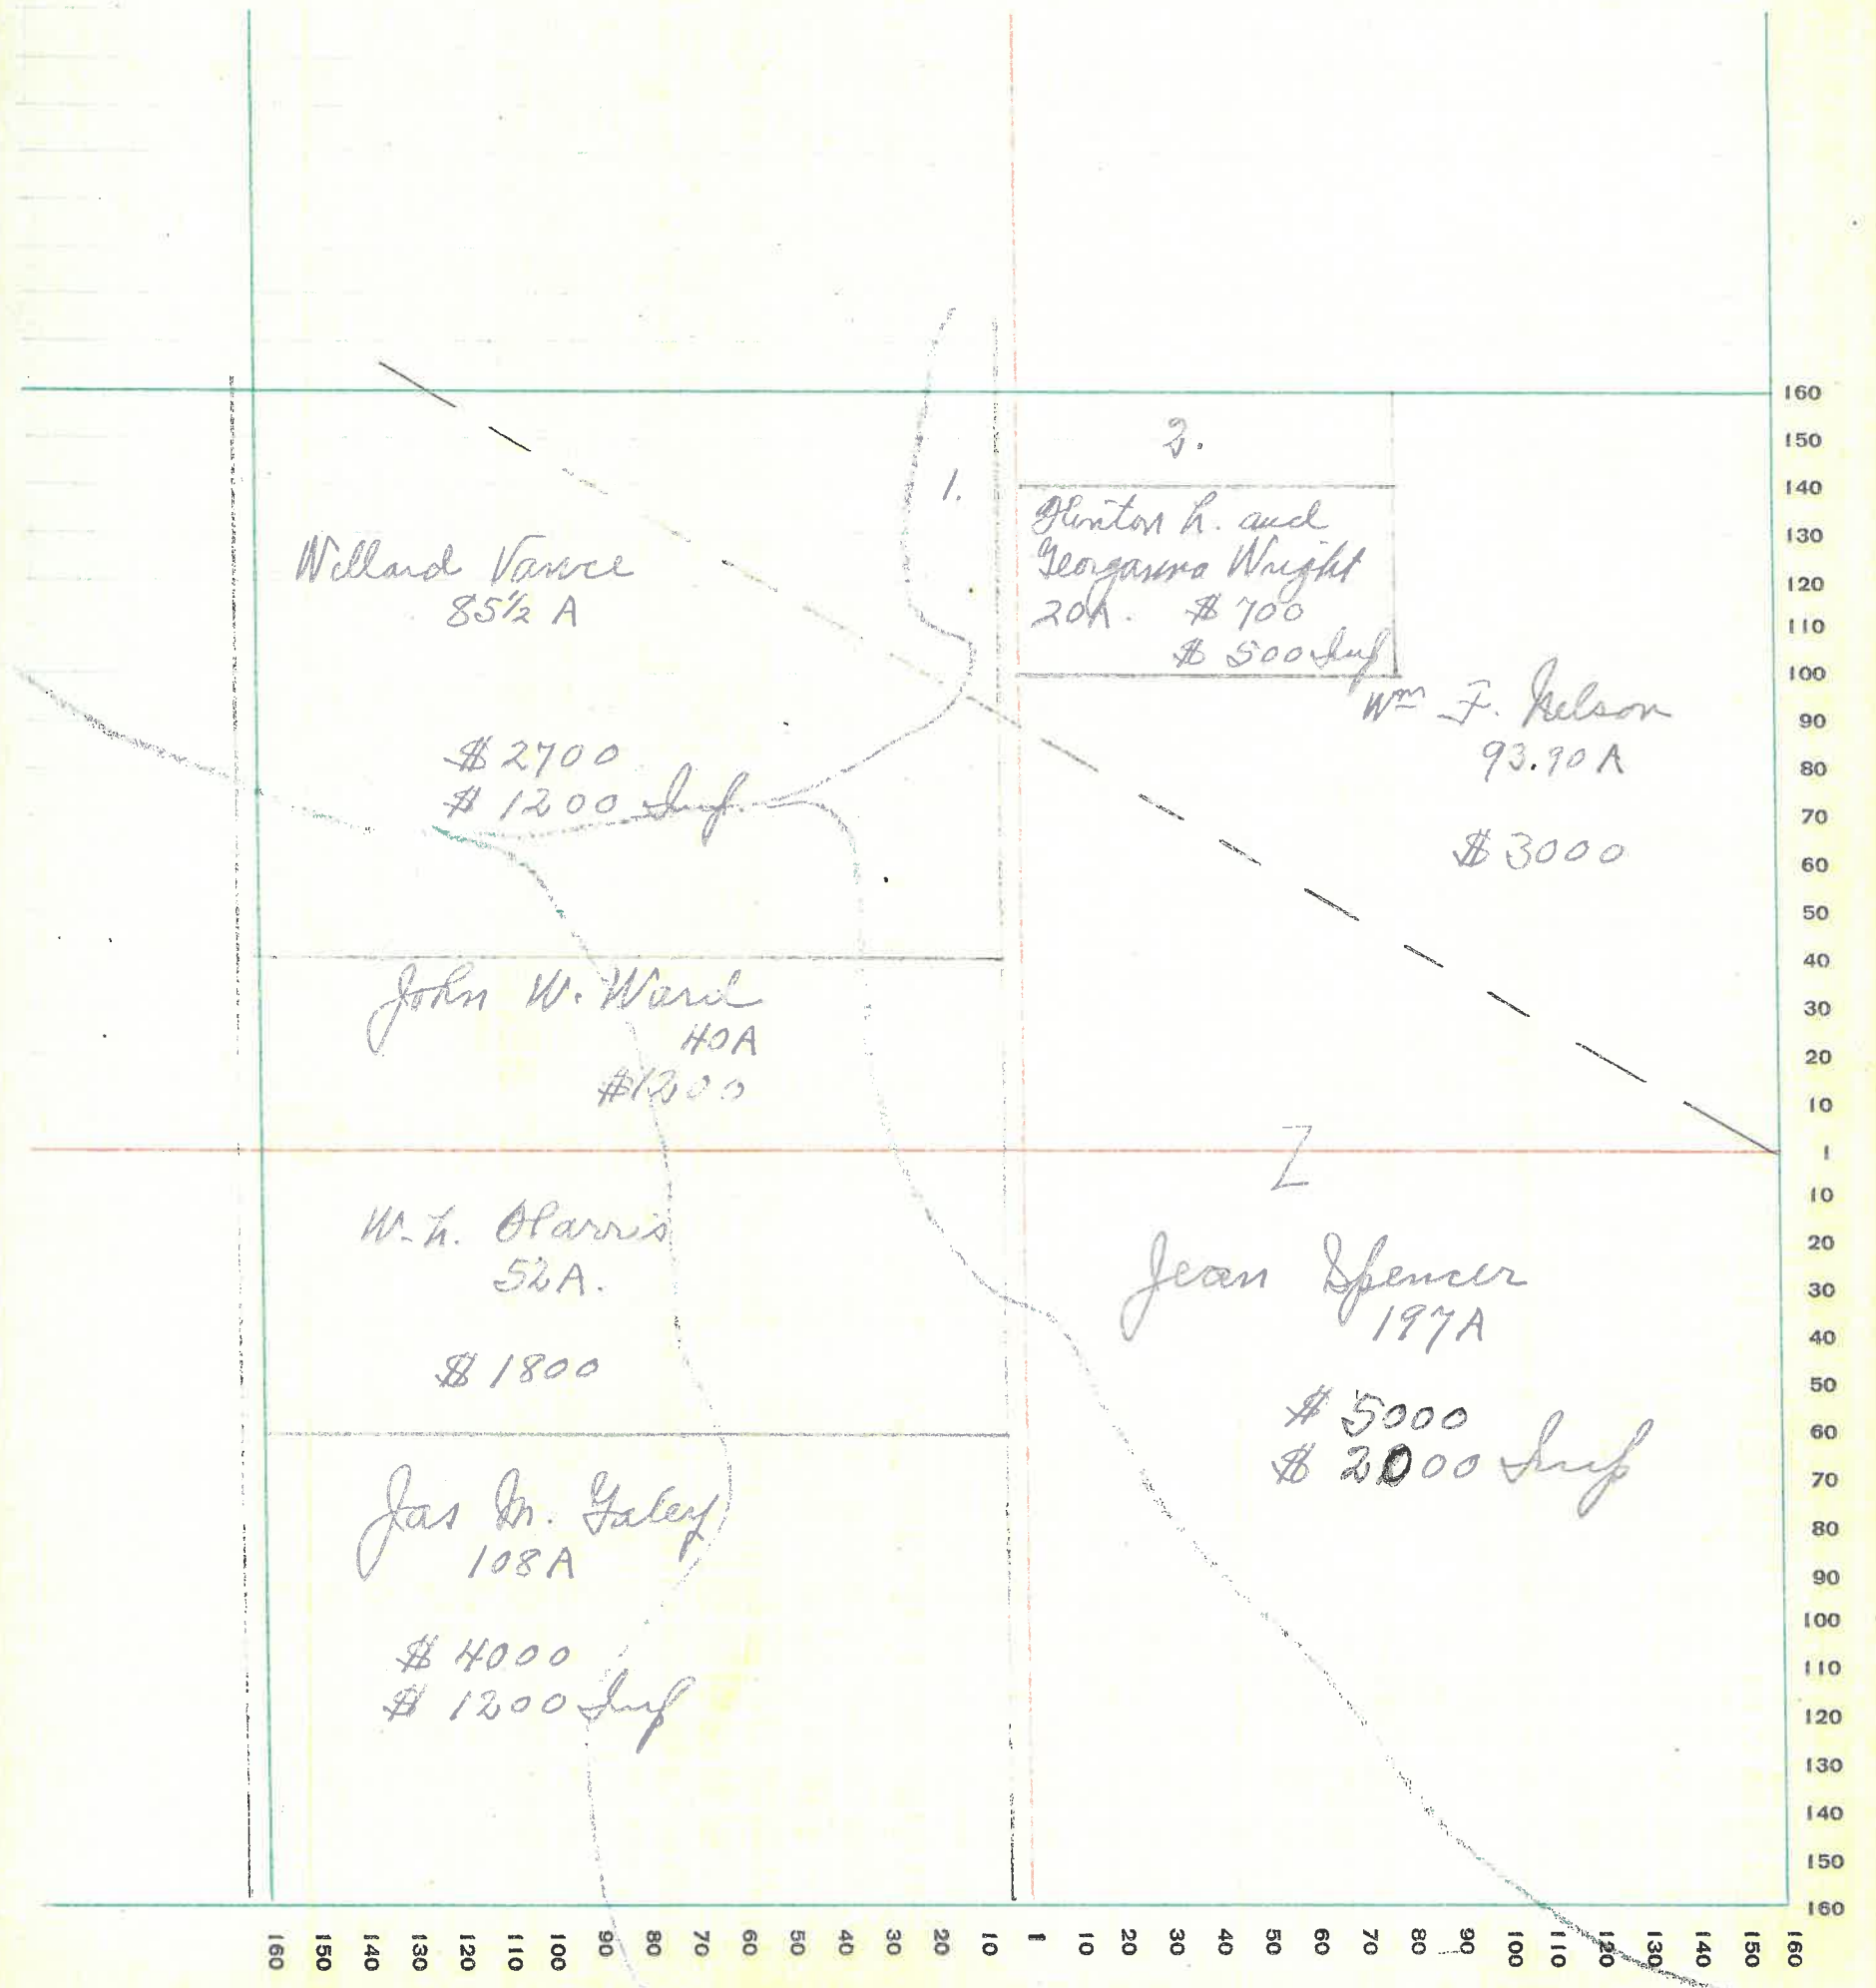 160
150
140
130
120
110
100
90
80
70
60
50
40
30
20
10
1
10
20
30
40
50
60
70
80
90
100
110
120
130
140
150
160
2.
1.
L. and
Georganna Wright
20A. $700
$500 Imp
Willard Vance
85½ A
$2700
$1200 Imp.
Wm F. Nelson
93.90 A
$3000
John W. Ward
40A
$1200
Z
W. L. Harris
52A.
$1800
Jean Spencer
197A
$5000
$2000 Imp
Jas M. Galey
108A
$4000
$1200 Imp
160 150 140 130 120 110 100 90 80 70 60 50 40 30 20 10 1 10 20 30 40 50 60 70 80 90 100 110 120 130 150 160